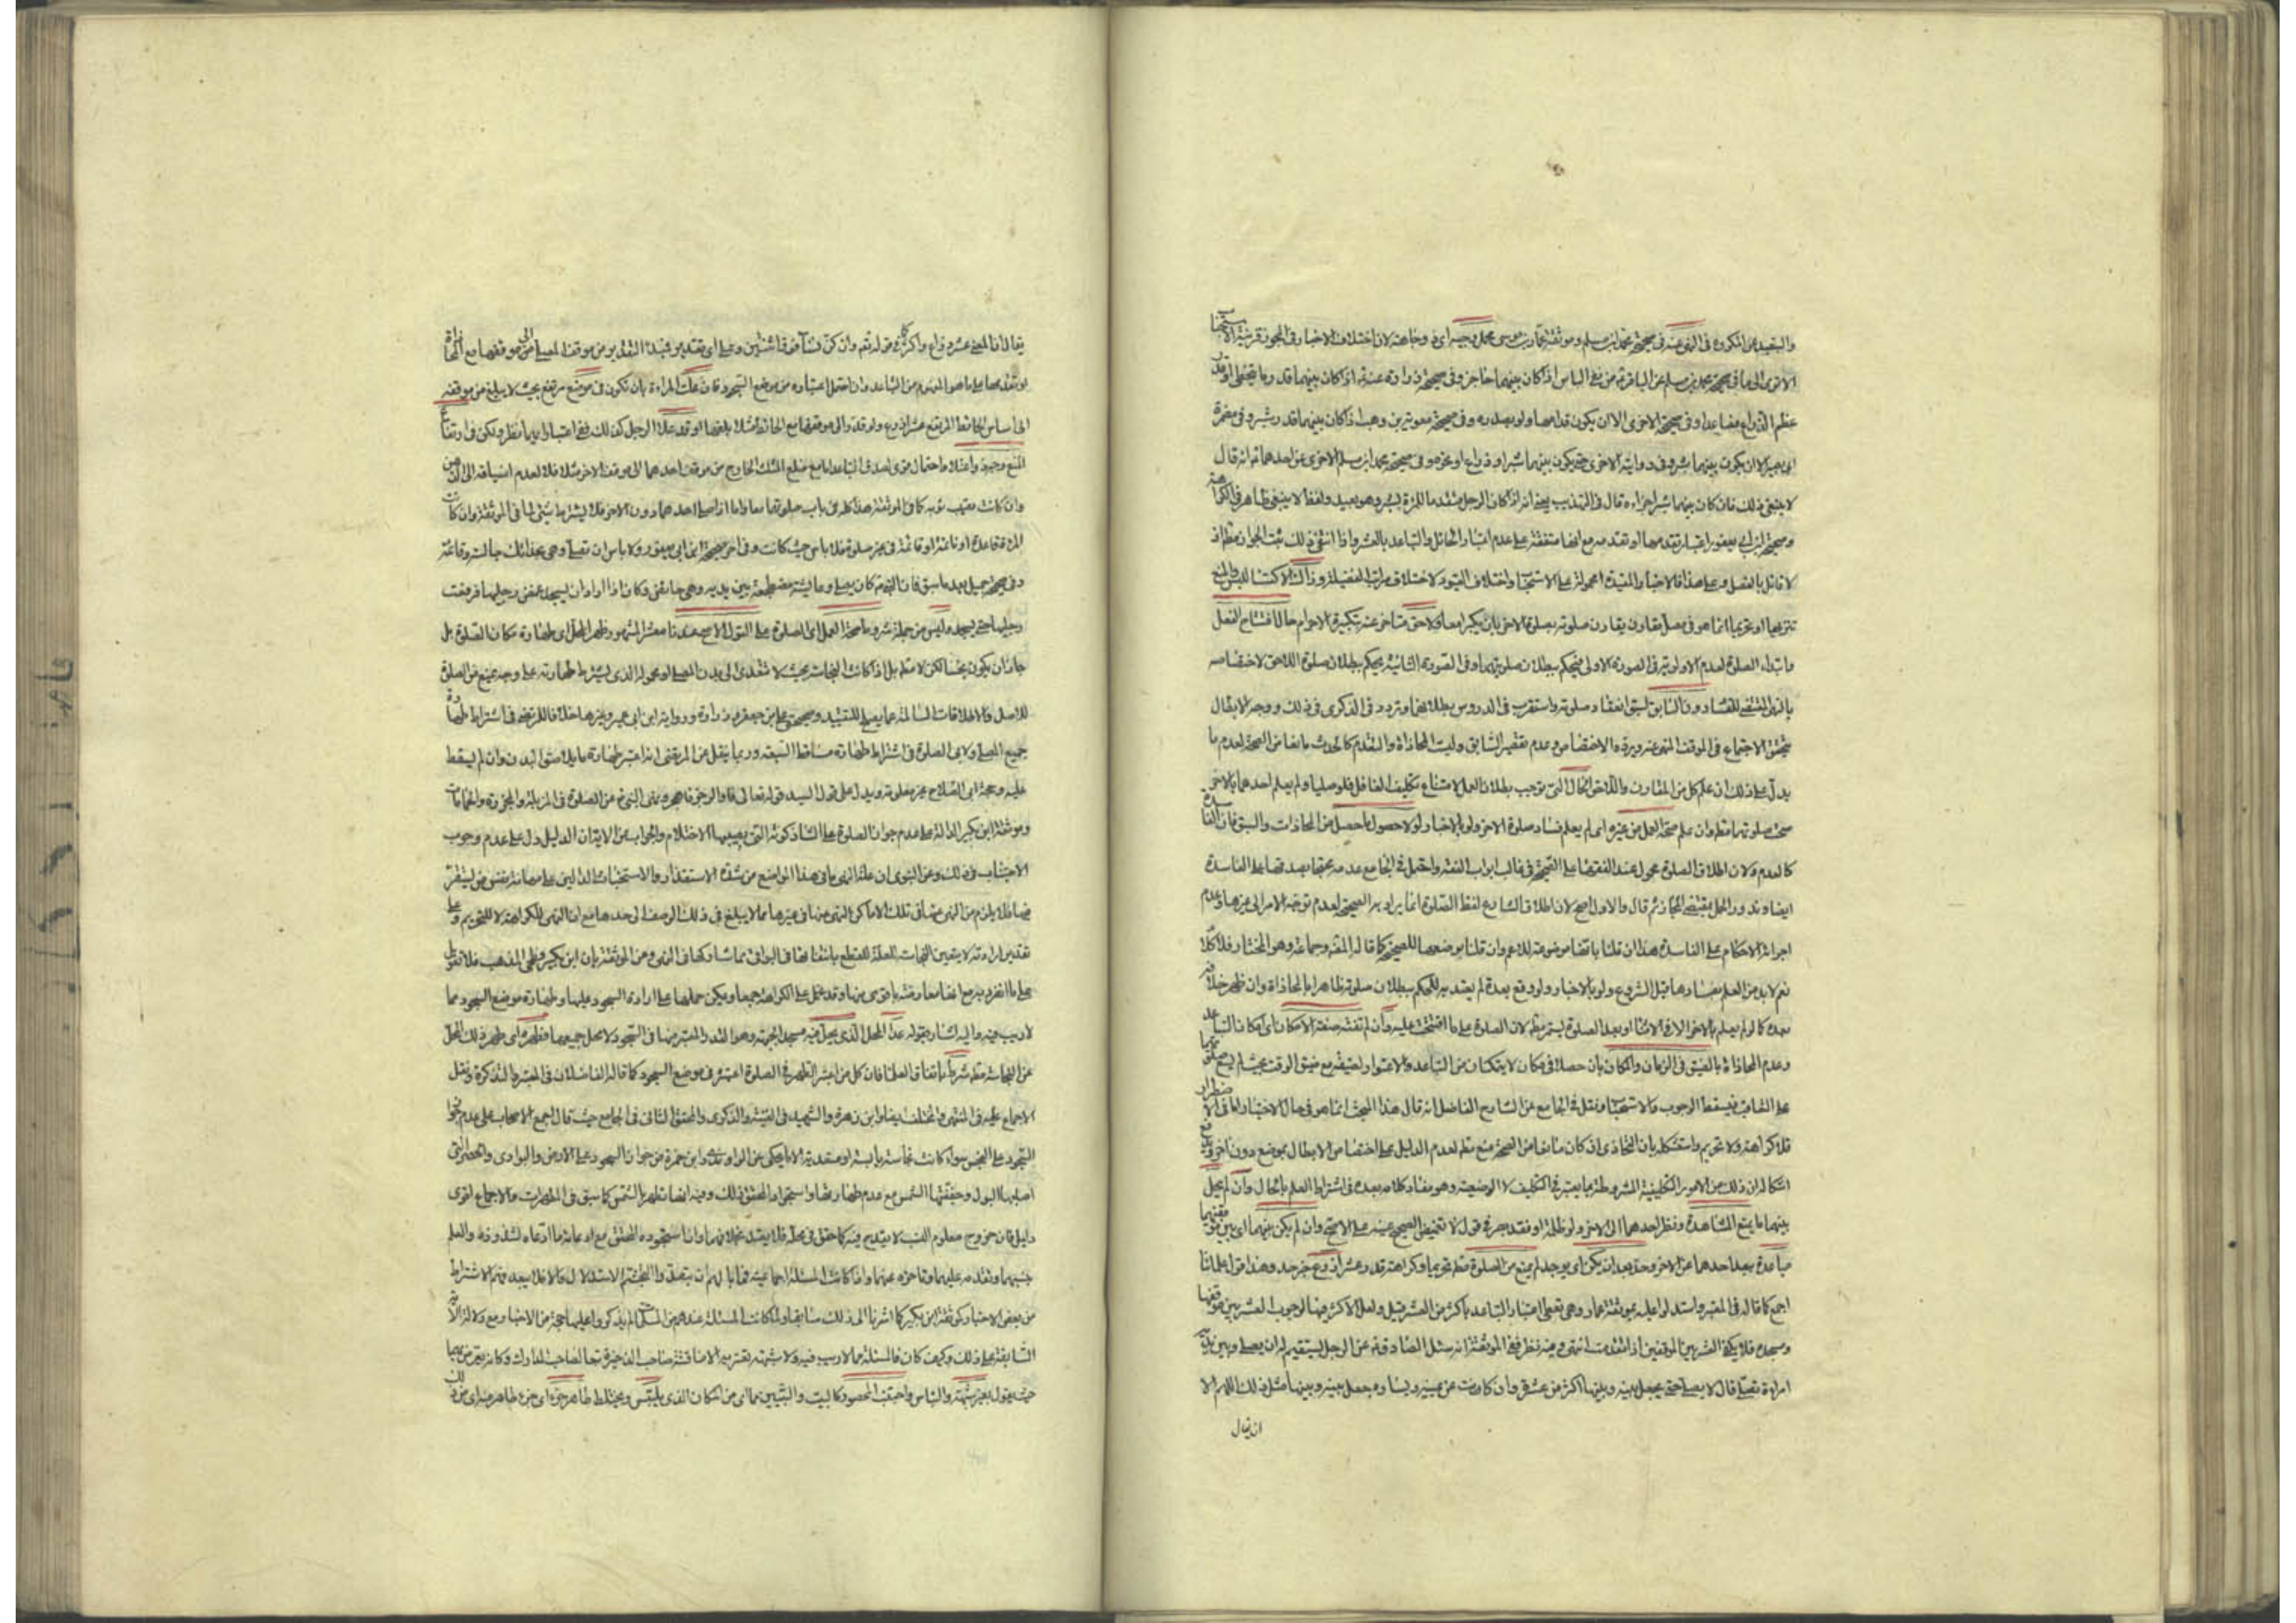 والتقييد عن المكروه في النهي عنه في صحيحة محمد بن مسلم وموثقة عمار بن موسى محمل وجيه اي ذو وجاهة لان اختلاف الاخبار في المجوز قرينة الاستحباب
الاترى الى ما في صحيحة محمد بن مسلم عن الباقر من نفي الباس اذا كان بينهما حاجز وفي صحيحة زرارة عنه اذا كان بينهما قدر ما يتخطى او قدر
عظم الذراع فصاعدا وفي صحيحة الاخرى الا ان يكون قدامها ولو بصدره وفي صحيحة معوية بن وهب اذا كان بينهما قدر شبر وفي مضمرة
ابي بصير الا ان يكون بينهما شبر وفي رواية الاخرى حتى يكون بينهما شبر او ذراع او نحوه وفي صحيحة محمد ابن مسلم الاخرى عن احدهما انه قال
لا ينبغي ذلك فان كان بينهما شبر اجزاءه قال في التهذيب يعني انه اذا كان الرجل متقدما للمرئة بشبر وهو بعيد ولفظ لا ينبغي ظاهر في الكراهة
وصحيحة ابن ابي يعفور اعتبار تقدمها او تقدمه مع انها متفقة على عدم اعتبار الحائل والتباعد بالعشر واذا انتفى ذلك ثبت الجواز مطلقا اذ
لا قائل بالفصل وعلى هذا فالاخبار المقيدة محمولة على الاستحباب واختلاف القيود لاختلاف مراتب الفضيلة وذلك
تنزيها او تحريما انما هو في مصل مقارن يقارن صلوته بصلوة الاخر بان يكبرا معا او لاحق متاخر عنه بتكبيرة الاحرام حال افتتاح الفعل
وابتداء الصلوة لعدم الاولوية في الصورة الاولى فيحكم ببطلان صلوتهما وفي الصورة الثانية يحكم ببطلان صلوة اللاحق لاختصاصه
بالنهي المقتضي للفساد دون السابق لسبق انعقاد صلوته واستقرب في الدروس بطلانهما وتردد في الذكرى في ذلك ووجه الابطال
تحقق الاجتماع في الموقف المنهي عنه ويرده الاختصاص وعدم تقصير السابق وليت المحاذاة والتقدم كالحدث مانعا من الصحة لعدم ما
يدل على ذلك ان علم كل من المقارن واللاحق الحال التي توجب بطلان العمل لامتناع تكليف الغافل فلو صليا ولم يعلم احدهما بالاخر
صحت صلوتهما مطلقا وان علم صحة العمل من غيره اي لم يعلم فساد صلوة الاخر ولو بالاخبار لولا حصول ما حصل من المحاذات والسبق فان الفاسدة
كالعدم ولان اطلاق الصلوة محمول عند الفقهاء على الصحيحة في غالب ابواب الفقه واحتمل في الجامع عدمه محتجا بصدقها على الفاسدة
ايضا وندور الحمل بمقتضى المجاز ثم قال والاول اصح لان اطلاق الشارع لفظ الصلوة انما يراد به الصحيحة لعدم توجه الامر الى غيرها وعدم
اجراء الاحكام على الفاسدة هذا ان قلنا بانها موضوعة للاعم وان قلنا بوضعها للصحيحة كما قاله المص وجماعة وهو المختار فلا كلام
نعم لابد من العلم بفسادها قبل الشروع ولو بالاخبار ولو وقع بعده لم يعتد به للحكم ببطلان صلوته ظاهرا بالمحاذاة وان ظهر خلافه
بعده كما لو لم يعلم بالاخر الا في الاثناء او بعد الصلوة يستمر مطلقا لان الصلوة على ما افتتحت عليه وان لم تفته صفة الامكان اي امكان التباعد
وعدم المحاذاة بالضيق في الزمان والمكان بان حصلا في مكان لا يتمكنان من التباعد والاستتار لضيقه مع ضيق الوقت بحيث لم يسع صلوتهما
على التعاقب فيسقط الوجوب والاستحباب ونقل في الجامع عن الشارح الفاضل انه قال هذا البحث انما هو في حال الاختيار اما في الاضطرار
فلا كراهة ولا تحريم واستشكله بان التحاذي ان كان مانعا من الصحة منع مطلقا لعدم الدليل على اختصاص الابطال بموضع دون اخر ويدفع
اشكاله ان ذلك من الامور التكليفية المشروطة بما يعتبر في التكليف لا الوضعية وهو مفاد كلامه بعده في اشتراط العلم بالحال وان لم يحل
بينهما ما يمنع المشاهدة ونظر احدهما الى الاخر ولو ظلمة او فقد بصر في قول لا تغميض الصحيح عينه على الاصح وان لم يكن بينهما اي بين موقفيهما
مباعدة ببعد احدهما عن الاخر وحد بعد ان يكن اي يوجد لم يمنع من الصلوة مطلقا تحريما وكراهة قدر عشر اذرع وهذا قول علمائنا
اجمع كما قاله في المعتبر واستدلوا عليه بموثقة عمار وهي تعطي اعتبار التباعد باكثر من العشر قيل ولعل الاكثر فيها لوجوب العشر بين موقفها
ومسجده فلا يكفي العشر بين الموقفين اذا تقدمت انتهى وفيه نظر ففي الموثقة انه سئل الصادق عن الرجل يستقيم له ان يصلي وبين يديه
امراءة تصلي قال لا يصلي حتى يجعل بينه وبينها اكثر من عشرة وان كانت عن يمينه ويساره جعل بينه وبينها مثل ذلك اللهم الا
ان يقال
يقال ان المعنى عشرة اذرع واكثر كما في قوله تع وان كن نساء فوق اثنتين وعلى اي تقدير فمبدء التقدير من موقف المصلي الى موقفها مع المحاذاة
او تقدمها على ما هو المفهوم من التباعد وان احتمل اعتباره من موضع السجود فان علت المراءة بان تكون في موضع مرتفع بحيث لا يبلغ من موقفه
الى اساس الحائط المرتفع عشر اذرع ولو قدر الى موقفها مع الحائط مثلا بلغها او قد علا الرجل كذلك ففي اعتبار ايهما نظر ولكن في ارتفاع
المنع وجيه واعتدل واحتمال قوي لصدق التباعد اما مع ضلع المثلث الخارج من موقف احدهما الى موقف الاخر مثلا فلا لعدم انسياقه الى الذهن
وان كانت تصيب ثوبه كما في الموثقة هذا كله في باب صلوتهما معا واما اذا صلى احدهما دون الاخر فلا يشترط شيء لما في الموثقة وان كانت
المرءة قاعدة او نائمة او قائمة في غير صلوة فلا باس حيث كانت وفي اخر صحيحة ابن ابي يعفور ولا باس ان تصلي وهي بحذائك جالسة وقائمة
وفي صحيحة جميل بعد ما سبق فان النبي ص كان يصلي وعايشة مضطجعة بين يديه وهي حائض وكان اذا اراد ان يسجد غمز رجليها فرفعت
رجليها حتى يسجد وليس من جملة شروط صحة العمل اي الصلوة على القول الاصح عندنا معشر المشهور وظهر المحل اي طهارة مكان الصلوة بل
جاز ان يكون نجسا لكن لا مطلقا بل اذا كانت النجاسة بحيث لا تتعدى الى بدن المصلي او محموله الذي يشترط طهارته على وجه يمنع من الصلوة
للاصل والاطلاقات السالمة عما يصلح للتقييد وصحيحة علي بن جعفر وزرارة ورواية ابن ابي عمير وغيرها خلافا للمرتضى في اشتراط طهارة
جميع المصلى ولابي الصلاح في اشتراط طهارة مساقط السبعة وربما ينقل عن المرتضى انه اعتبر طهارة ما يلامس البدن وان لم يسقط
عليه وحجة ابي الصلاح غير معلومة ويدل على قول السيد قوله تعالى فالرجز فاهجر ونهى النبي ص عن الصلوة في المزبلة والمجزرة والحمامات
وموثقة ابن بكير الدالة على عدم جواز الصلوة على الشاذكونة التي يصيبها الاحتلام والجواب عن الاية ان الدليل دل على عدم وجوب
الاجتناب في ذلك وعن النبوي ان علة النهي ما في هذا المواضع من شدة الاستقذار والاستخباث الدالين على مهانة نفس من يستقر
فيها فلا يلزم من النهي عنها في تلك الاماكن النهي عنها في غيرها مما لا يبلغ في ذلك الوصف الى حدها مع ان النهي للكراهة لا للتحريم وعلى
تقدير ارادته لا يتعين النجاسات للعلة للقطع بانتفائها في البواقي مما شاركها في النهي وعن الموثقة بان ابن بكير فطحي المذهب فلا تعويل
على ما انفرد به مع انها معارضة باقوى منها وقد تحمل على الكراهة جمعا ويمكن حملها على ارادة السجود عليها وطهارة موضع السجود مما
لا ريب فيه واليه اشار بقوله عدا المحل الذي يحل فيه مسجد الجبهة وهو القدر المعتبر منها في السجود لا محل جميعها فطهره اي طهر ذلك المحل
عن النجاسة مطلقا شرط باتفاق العلماء فان كل من اعتبر الطهر في الصلوة اعتبره في موضع السجود كما قاله الفاضلان في المعتبر والتذكرة ونقل
الاجماع عليه في المنتهى والمختلف ايضا وابن زهرة والشهيد في الغنية والذكرى والمحقق الثاني في الجامع حيث قال اجمع الاصحاب على عدم جواز
السجود على النجس سواء كانت نجاسته يابسة او متعدية الا ما يحكى عن الراوندي وابن حمزة من جواز السجود على الارض والبواري والحصر التي
اصابها البول وجففتها الشمس مع عدم طهارتها واستجواد المحقق ذلك وفيه انها تطهر بالشمس كما سبق في المطهرات والاجماع اقوى
دليل فان خروج معلوم النسب لا يقدح فيه كما حقق في محله فلا يعتد بخلافهما وان استجوده المحقق مع ادعائه ما ادعاه لشذوذه والعلم
بنسبهما وتقدمه عليهما وتاخره عنهما واذا كانت المسئلة اجماعية فما بالهم ان يتصدوا لتجشم الاستدلال والا فلا يبعد فهم الاشتراط
من بعض الاخبار كموثقة ابن بكير كما اشرنا الى ذلك سابقا ولما كانت المسئلة عندهم من المسلمات لم يذكروا عليها حجة من الاخبار مع دلالة الاية
السابقة على ذلك وكيف كان فالمسئلة مما لا ريب فيه ولا شبهة تعتريه الا مناقشة صاحب الذخيرة تبعا لصاحب المدارك وكانه تعرض بهما
حيث يقول بغير شبهة والتباس واجتنب المحصور كالبيت والبيتين مما اي من المكان الذي يلتبس ويختلط طاهر جزءه اي جزء طاهر منه اي من ذلك